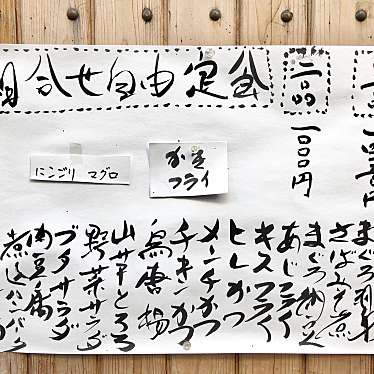 組合せ自由定食
二品 一〇〇〇円
ニンゴリ マグロ
かき
フライ
さばみそ煮
あじフライ
キスフライ
ヒレかつ
メンチかつ
チキンかつ
鳥唐揚
山芋とろろ
野菜サラダ
ブタサラダ
肉豆腐
煮込ハンバーグ